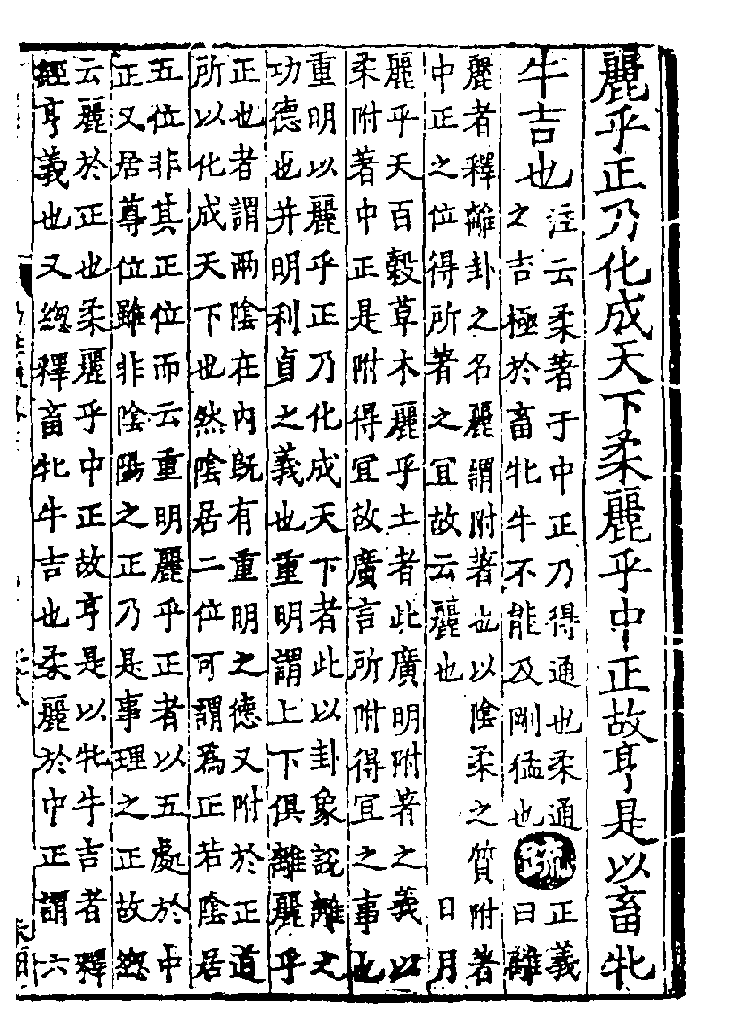 麗乎正乃化成天下柔麗乎中正故亨是以畜牝
牛吉也
注云柔著于中正乃得通也柔通
之吉極於畜牝牛不能及剛猛也
疏
正義
曰離
麗者釋離卦之名麗謂附著也以陰柔之質附著
中正之位得所著之宜故云麗也 日月
麗乎天百穀草木麗乎土者此廣明附著之義以
柔附著中正是附得宜故廣言所附得宜之事也
重明以麗乎正乃化成天下者此以卦象說離之
功德也并明利貞之義也重明謂上下俱離麗乎
正也者謂兩陰在內既有重明之德又附於正道
所以化成天下也然陰居二位可謂為正若陰居
五位非其正位而云重明麗乎正者以五處於中
正又居尊位雖非陰陽之正乃是事理之正故總
云麗於正也柔麗乎中正故亨是以牝牛吉者釋
經亨義也又總釋畜牝牛吉也柔麗於中正謂六